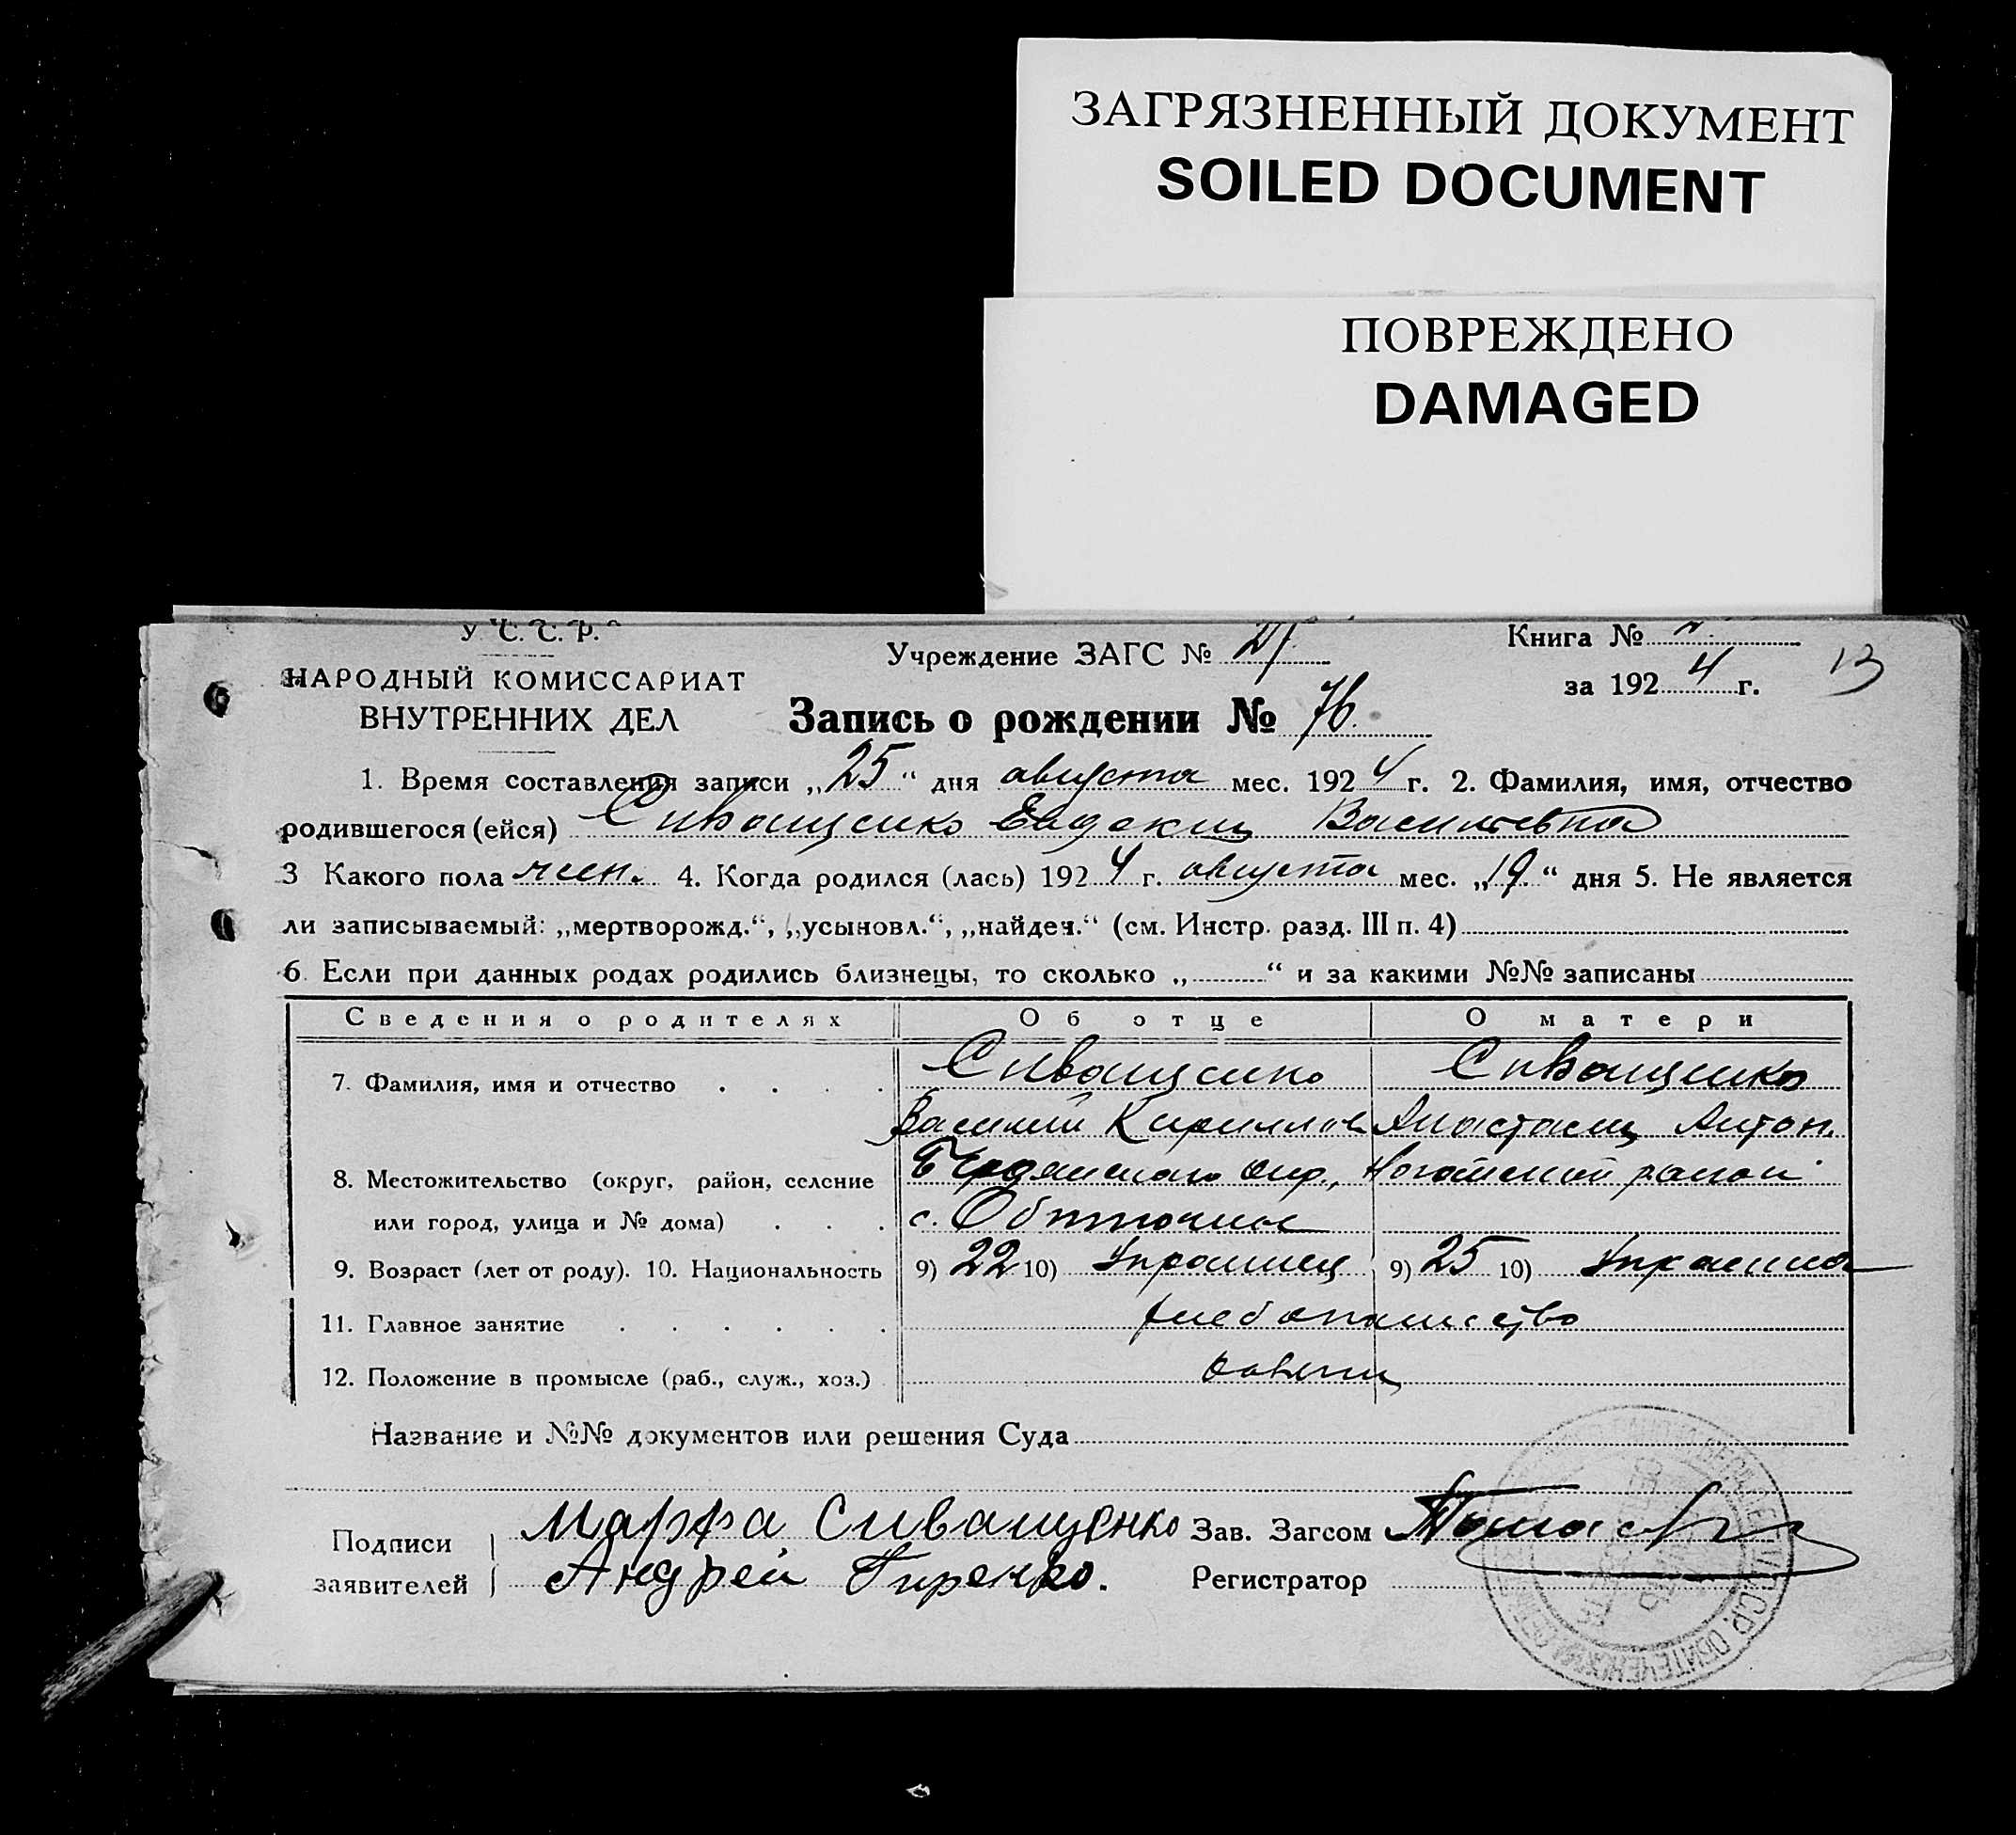 ЗАГРЯЗНЕННЫЙ ДОКУМЕНТ
SOILED DOCUMENT
ПОВРЕЖДЕНО
DAMAGED
У С. С. Р.
НАРОДНЫЙ КОМИССАРИАТ
ВНУТРЕННИХ ДЕЛ
Учреждение ЗАГС №
Книга №
за 1924 г.
13
Запись о рождении № 76.
1. Время составления записи „25“ дня августа мес. 1924 г. 2. Фамилия, имя, отчество
родившегося (ейся) Сиващенко Евдокия Васильевна
3 Какого пола жен. 4. Когда родился (лась) 1924 г. августа мес. „19.“ дня 5. Не является
ли записываемый: „мертворожд.“, „усыновл.“, „найден.“ (см. Инстр. разд. III п. 4)
6. Если при данных родах родились близнецы, то сколько „ “ и за какими №№ записаны
Сведения о родителях Об отце О матери
7. Фамилия, имя и отчество . . . . Сиващенко Сиващенко
Василий Кириллов Анастасия Антон.
8. Местожительство (округ, район, селение Бердянского окр., Ногайский район
или город, улица и № дома) . . . с. Обиточное
9. Возраст (лет от роду). 10. Национальность 9) 22 10) Украинец 9) 25 10) Украинка
11. Главное занятие . . . . . . хлебопашество
12. Положение в промысле (раб., служ., хоз.)
Название и №№ документов или решения Суда
Подписи заявителей
Марфа Сиващенко
Андрей Гиренко.
Зав. Загсом
Регистратор